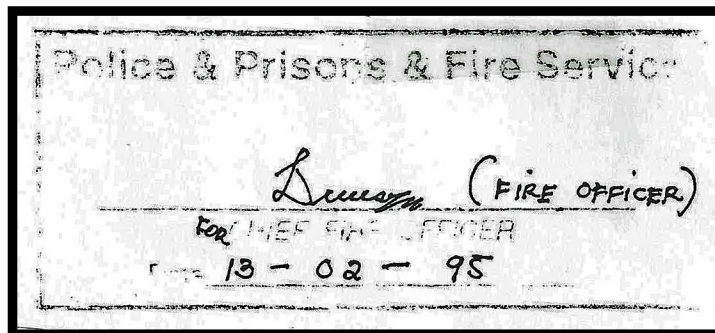 Police & Prisons & Fire Service
(FIRE OFFICER)
FOR CHIEF FIRE OFFICER
13 - 02 - 95